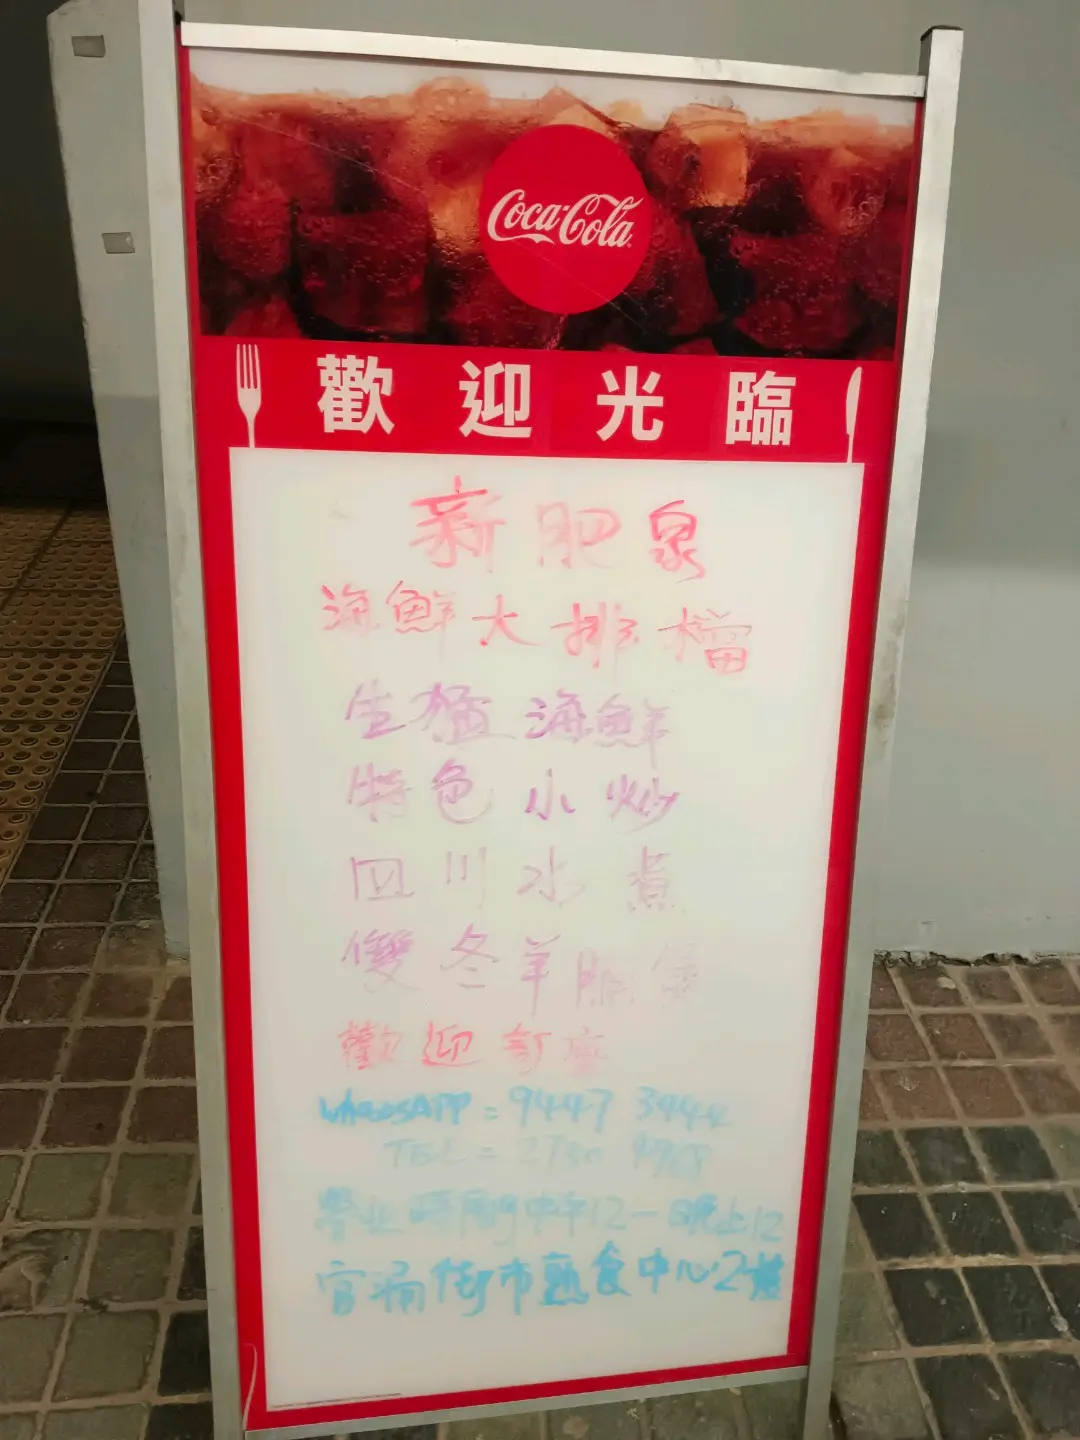 Coca-Cola
歡迎光臨
新肥泉
海鮮大排檔
生猛海鮮
特色小炒
四川水煮
雙冬羊腩煲
歡迎訂座
WhatsAPP = 9447 3444
TEL = 2730
營业時間中午12一晚上12
官涌街市熟食中心2號